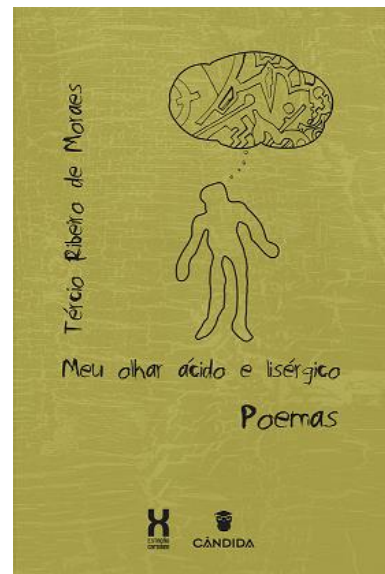 Tércio Ribeiro de Moraes
Meu olhar ácido e lisérgico
Poemas
CÂNDIDA